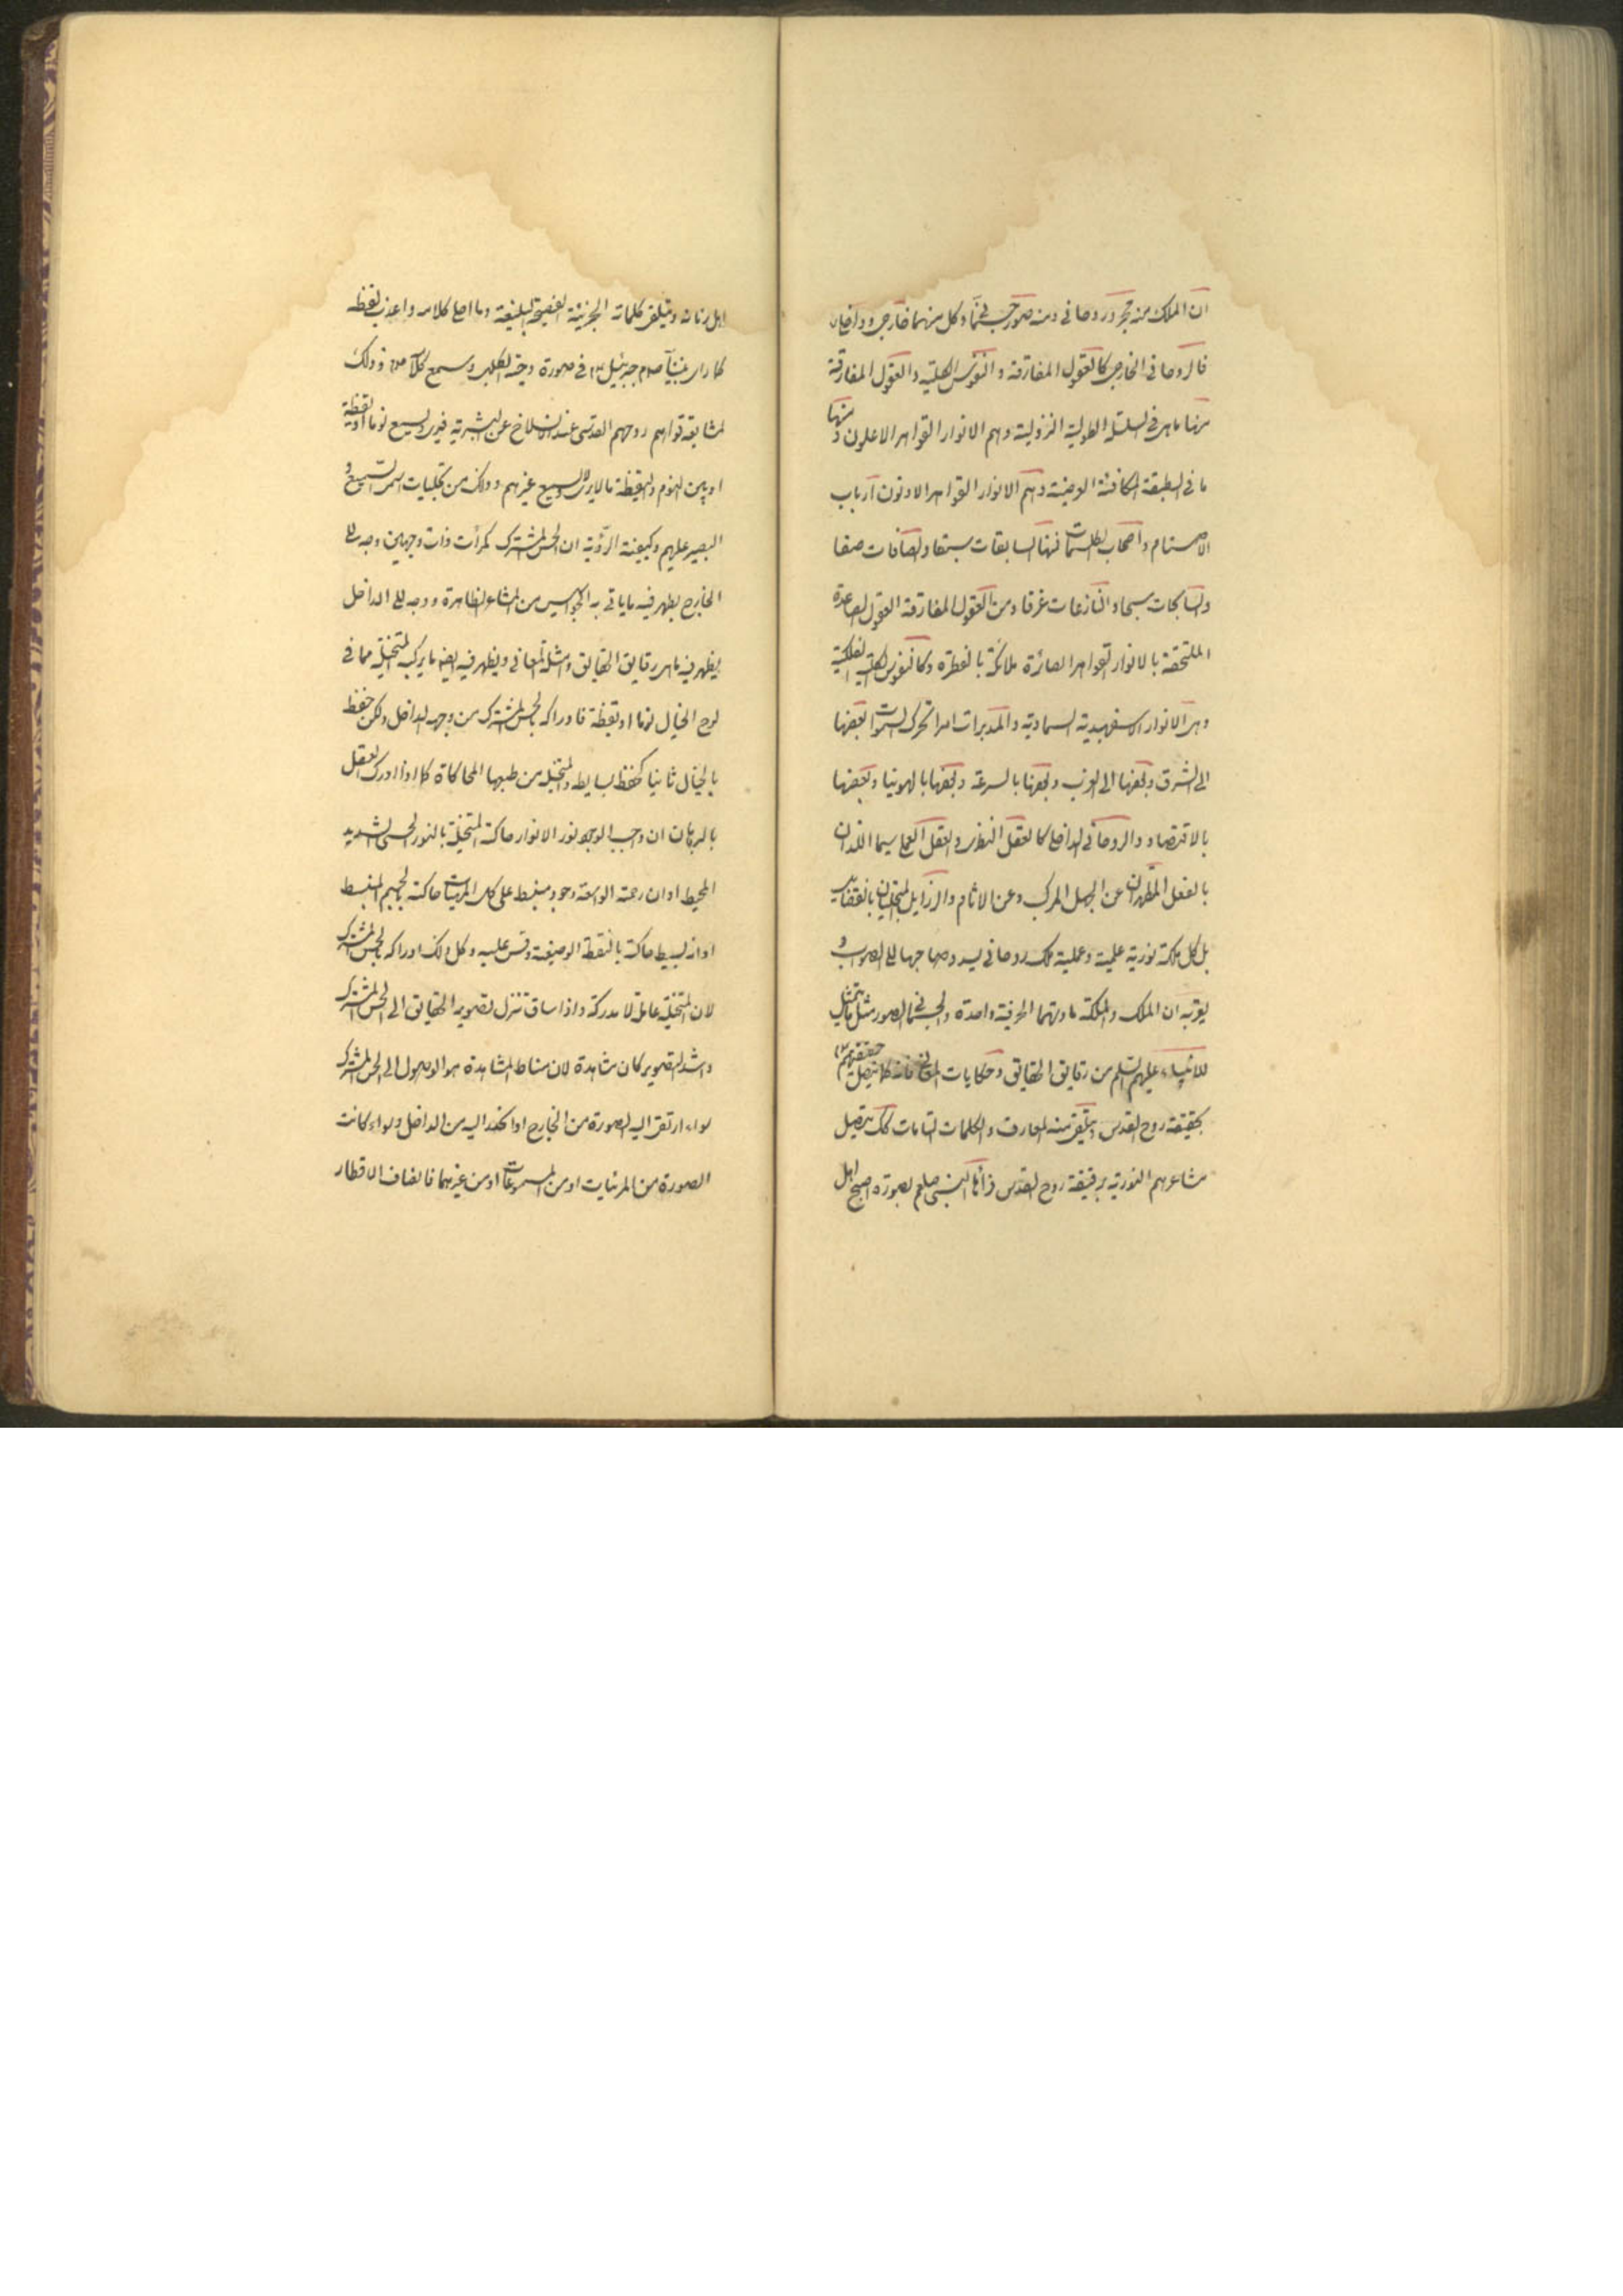 ان الملك منه مجرد روحانی و منه صور جسمانی و كل منهما خارجی و داخلی
فالروحانی الخارجی كالعقول المفارقة و النفوس الكلية و العقول المفارقة
منها ما هی فی السلسلة الطولية النزولية و هم الانوار القواهر الاعلون و منها
ما فی الطبقة المتكافئة العرضية و هم الانوار القواهر الادنون ارباب
الاصنام و اصحاب الطلسمات فمنها السابقات سبقا و الصافات صفا
و السابحات سبحا و النازعات غرقا و من العقول المفارقة العقول الصاعدة
الملتحقة بالانوار القواهر الصائرة ملائكة بالفطرة و كالنفوس الكلية الفلكية
و هی الانوار الاسفهبدية السماوية و المدبرات امرا تحرك السموات بعضها
الی الشرق و بعضها الی الغرب و بعضها بالسرعة و بعضها بالهوينا و بعضها
بالاقتصاد و الروحانی الداخلی كالعقل النظری و العقل العملی سيما اللذان
بالفعل المطهران عن الجهل المركب و عن الاثام و الرذايل المتجليان بالفضايل
بل كل ملكة نورية علمية و عملية ملك روحانی يسدد صاحبها الی الصواب و
يقربه ان الملك و الملكة مادتهما الحرفية واحدة و الجسمانی الصور مثل ما يتمثل
للانبياء عليهم السلم من رقايق الحقايق و حكايات المعانی فانه كلما يتصل حقيقتهم
بحقيقة روح القدس و يتلقی منه المعارف و الكلمات التامات كك يتصل
مشاعرهم النورية برقيقة روح القدس فرأها النبی صلعم بصورة اصبح اهل
اهل زمانه و يتلقی كلماته الجزئية الفصيحة البليغة و ما احلی كلامه و اعذب لفظه
كما رای نبينا صلم جبرئيل ع فی صورة دحية الكلبی و سمع كلامه و ذلك
لمشايعة قواهم روحهم القدسی عند الانسلاخ عن البشرية فيری و يسمع نوما او يقظة
او بين النوم و اليقظة ما لا يری و لا يسمع غيرهم و ذلك من تجليات اسم السميع و
البصير عليهم و كيفية الرؤية ان الحس المشترك كمرأت ذات وجهين وجه الی
الخارج يظهر فيه ما ياتی به الجواسيس من المشاعر الظاهرة و وجه الی الداخل
يظهر فيه ما هی رقايق الحقايق و امثلة المعانی و يظهر فيه ايضا ما يركبه المتخيلة مما فی
لوح الخيال نوما او يقظة فادراكه بالحس المشترك من وجهه الداخل و لكن حفظه
بالخيال ثانيا كحفظ بسايطه و المتخيلة من طبعها المحاكاة كلما اذا ادرك العقل
بالبرهان ان واجب الوجود نور الانوار حاكته المتخيلة بالنور الحسی الشديد
المحيط او ان رحمته الواسعة وجود منبسط علی كل المهيات حاكته بالجسم المنبسط
او انه بسيط حاكته بالنقطة الوضعية و قس عليه و كل ذلك ادراكه بالحس المشترك
لان المتخيلة عاملة لا مدركة و اذا ساق تنزل تصوير الحقايق الی الحس المشترك
و اشتد التصوير كان مشاهدة لان مناط المشاهدة هو الوصول الی الحس المشترك
سواء ارتقی اليه الصورة من الخارج او انحدر اليه من الداخل و سواء كانت
الصورة من المرئيات او من المسموعات او من غيرهما فالضاف الاقطار